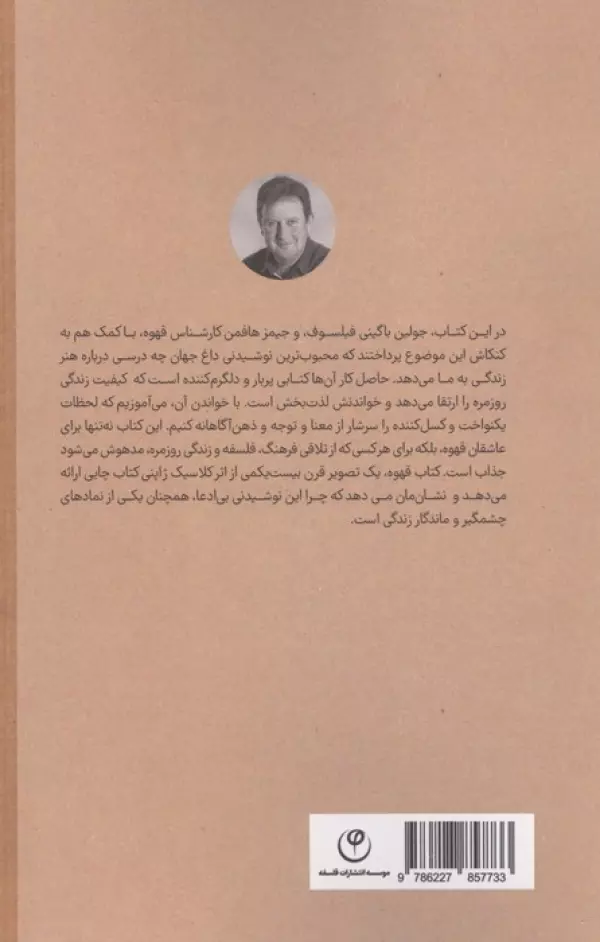 در این کتاب، جولین باگینی فیلسوف، و جیمز هافمن کارشناس قهوه، با کمک هم به
کنکاش این موضوع پرداختند که محبوب‌ترین نوشیدنی داغ جهان چه درسی درباره هنر
زندگی به ما می‌دهد. حاصل کار آن‌ها کتابی پربار و دلگرم‌کننده است که کیفیت زندگی
روزمره را ارتقا می‌دهد و خواندنش لذت‌بخش است. با خواندن آن، می‌آموزیم که لحظات
یکنواخت و کسل‌کننده را سرشار از معنا و توجه و ذهن‌آگاهانه کنیم. این کتاب نه‌تنها برای
عاشقان قهوه، بلکه برای هرکسی‌که از تلاقی فرهنگ، فلسفه و زندگی روزمره، مدهوش می‌شود
جذاب است. کتاب قهوه، یک تصویر قرن بیست‌یکمی از اثر کلاسیک ژاپنی کتاب چایی ارائه
می‌دهد و نشان‌مان می دهد که چرا این نوشیدنی بی‌ادعا، همچنان یکی از نمادهای
چشمگیر و ماندگار زندگی است.
موسسه انتشارات فلسفه
9 786227 857733